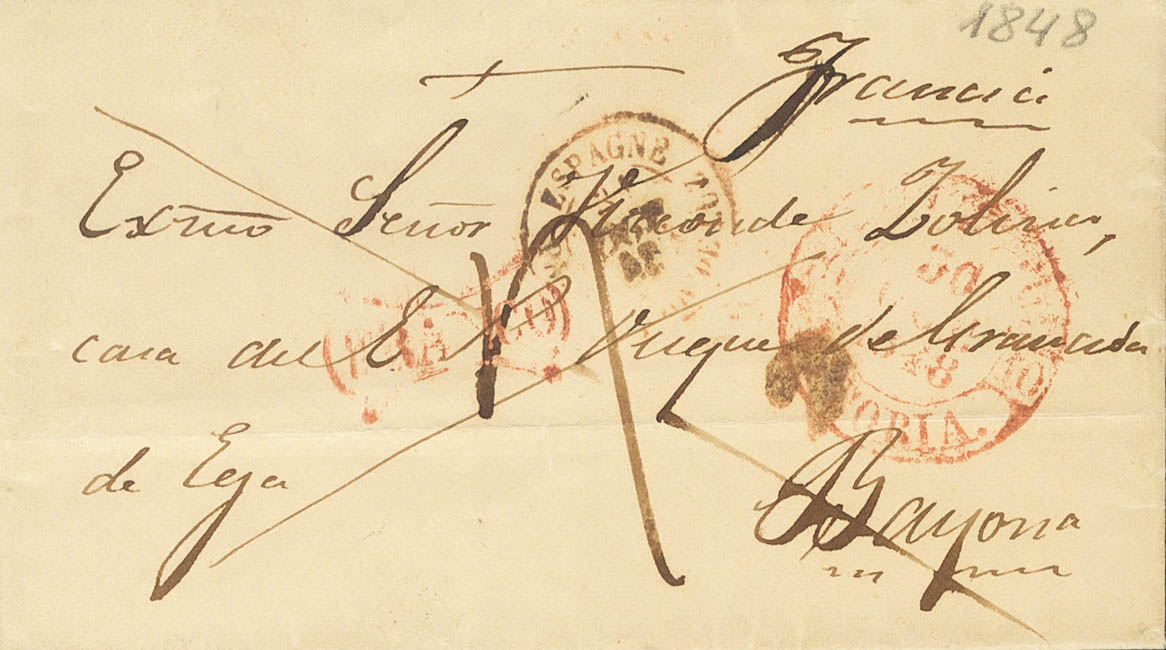 1848
Francia
Exmo Señor Vizconde Zolina,
casa del E S Duque de Granada
de Ega
Bayona
ESPAGNE
30
48
VITORIA.